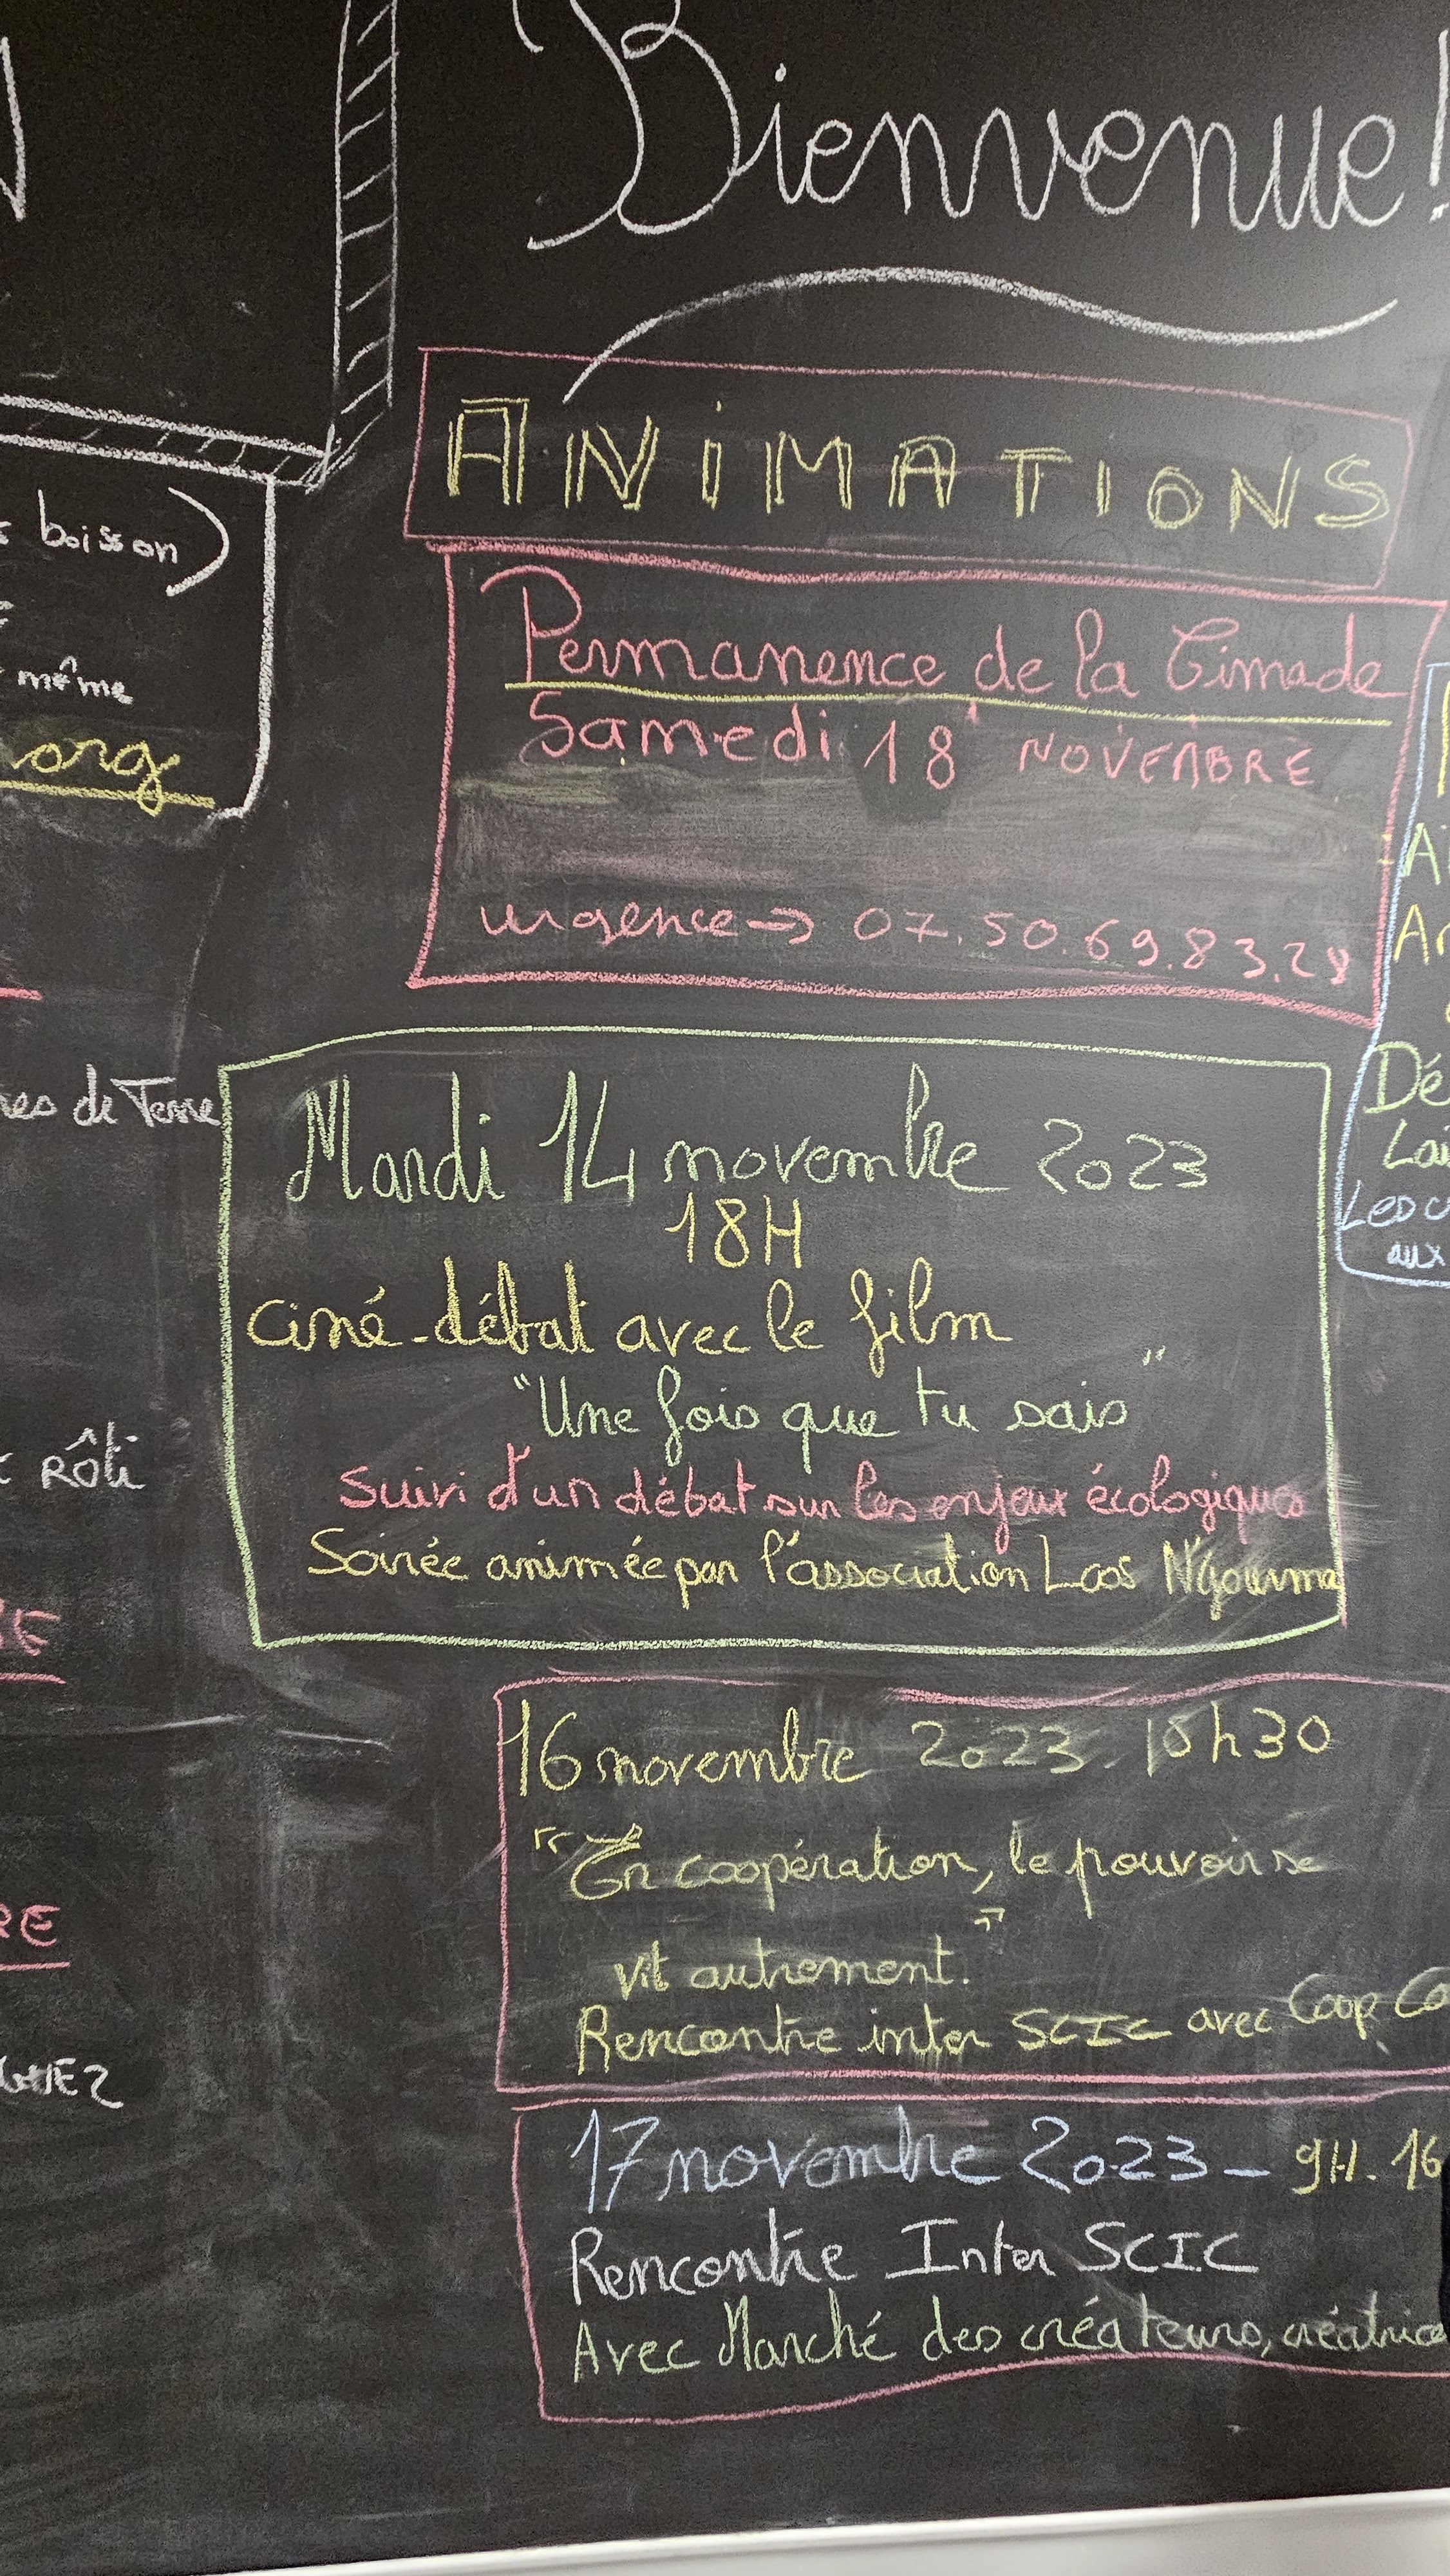 Bienvenue!
ANIMATIONS
Permanence de la Cimade
Samedi 18 NOVEMBRE
urgence → 07.50.69.83.28
Mardi 14 novembre 2023
18H
ciné-débat avec le film
"Une fois que tu sais"
suivi d'un débat sur les enjeux écologiques
Soirée animée par l'association Laas N'gourma
16 novembre 2023. 18h30
"En coopération, le pouvoir se
vit autrement."
Rencontre inter SCIC avec Coop Co
17 novembre 2023 - 9H. 16
Rencontre Inter SCIC
Avec Marché des créateurs, créatrice
boisson)
même
org
res de Terre
RÔTI
E
RE
Ai
Ar
Dé
Lai
Les c
aux